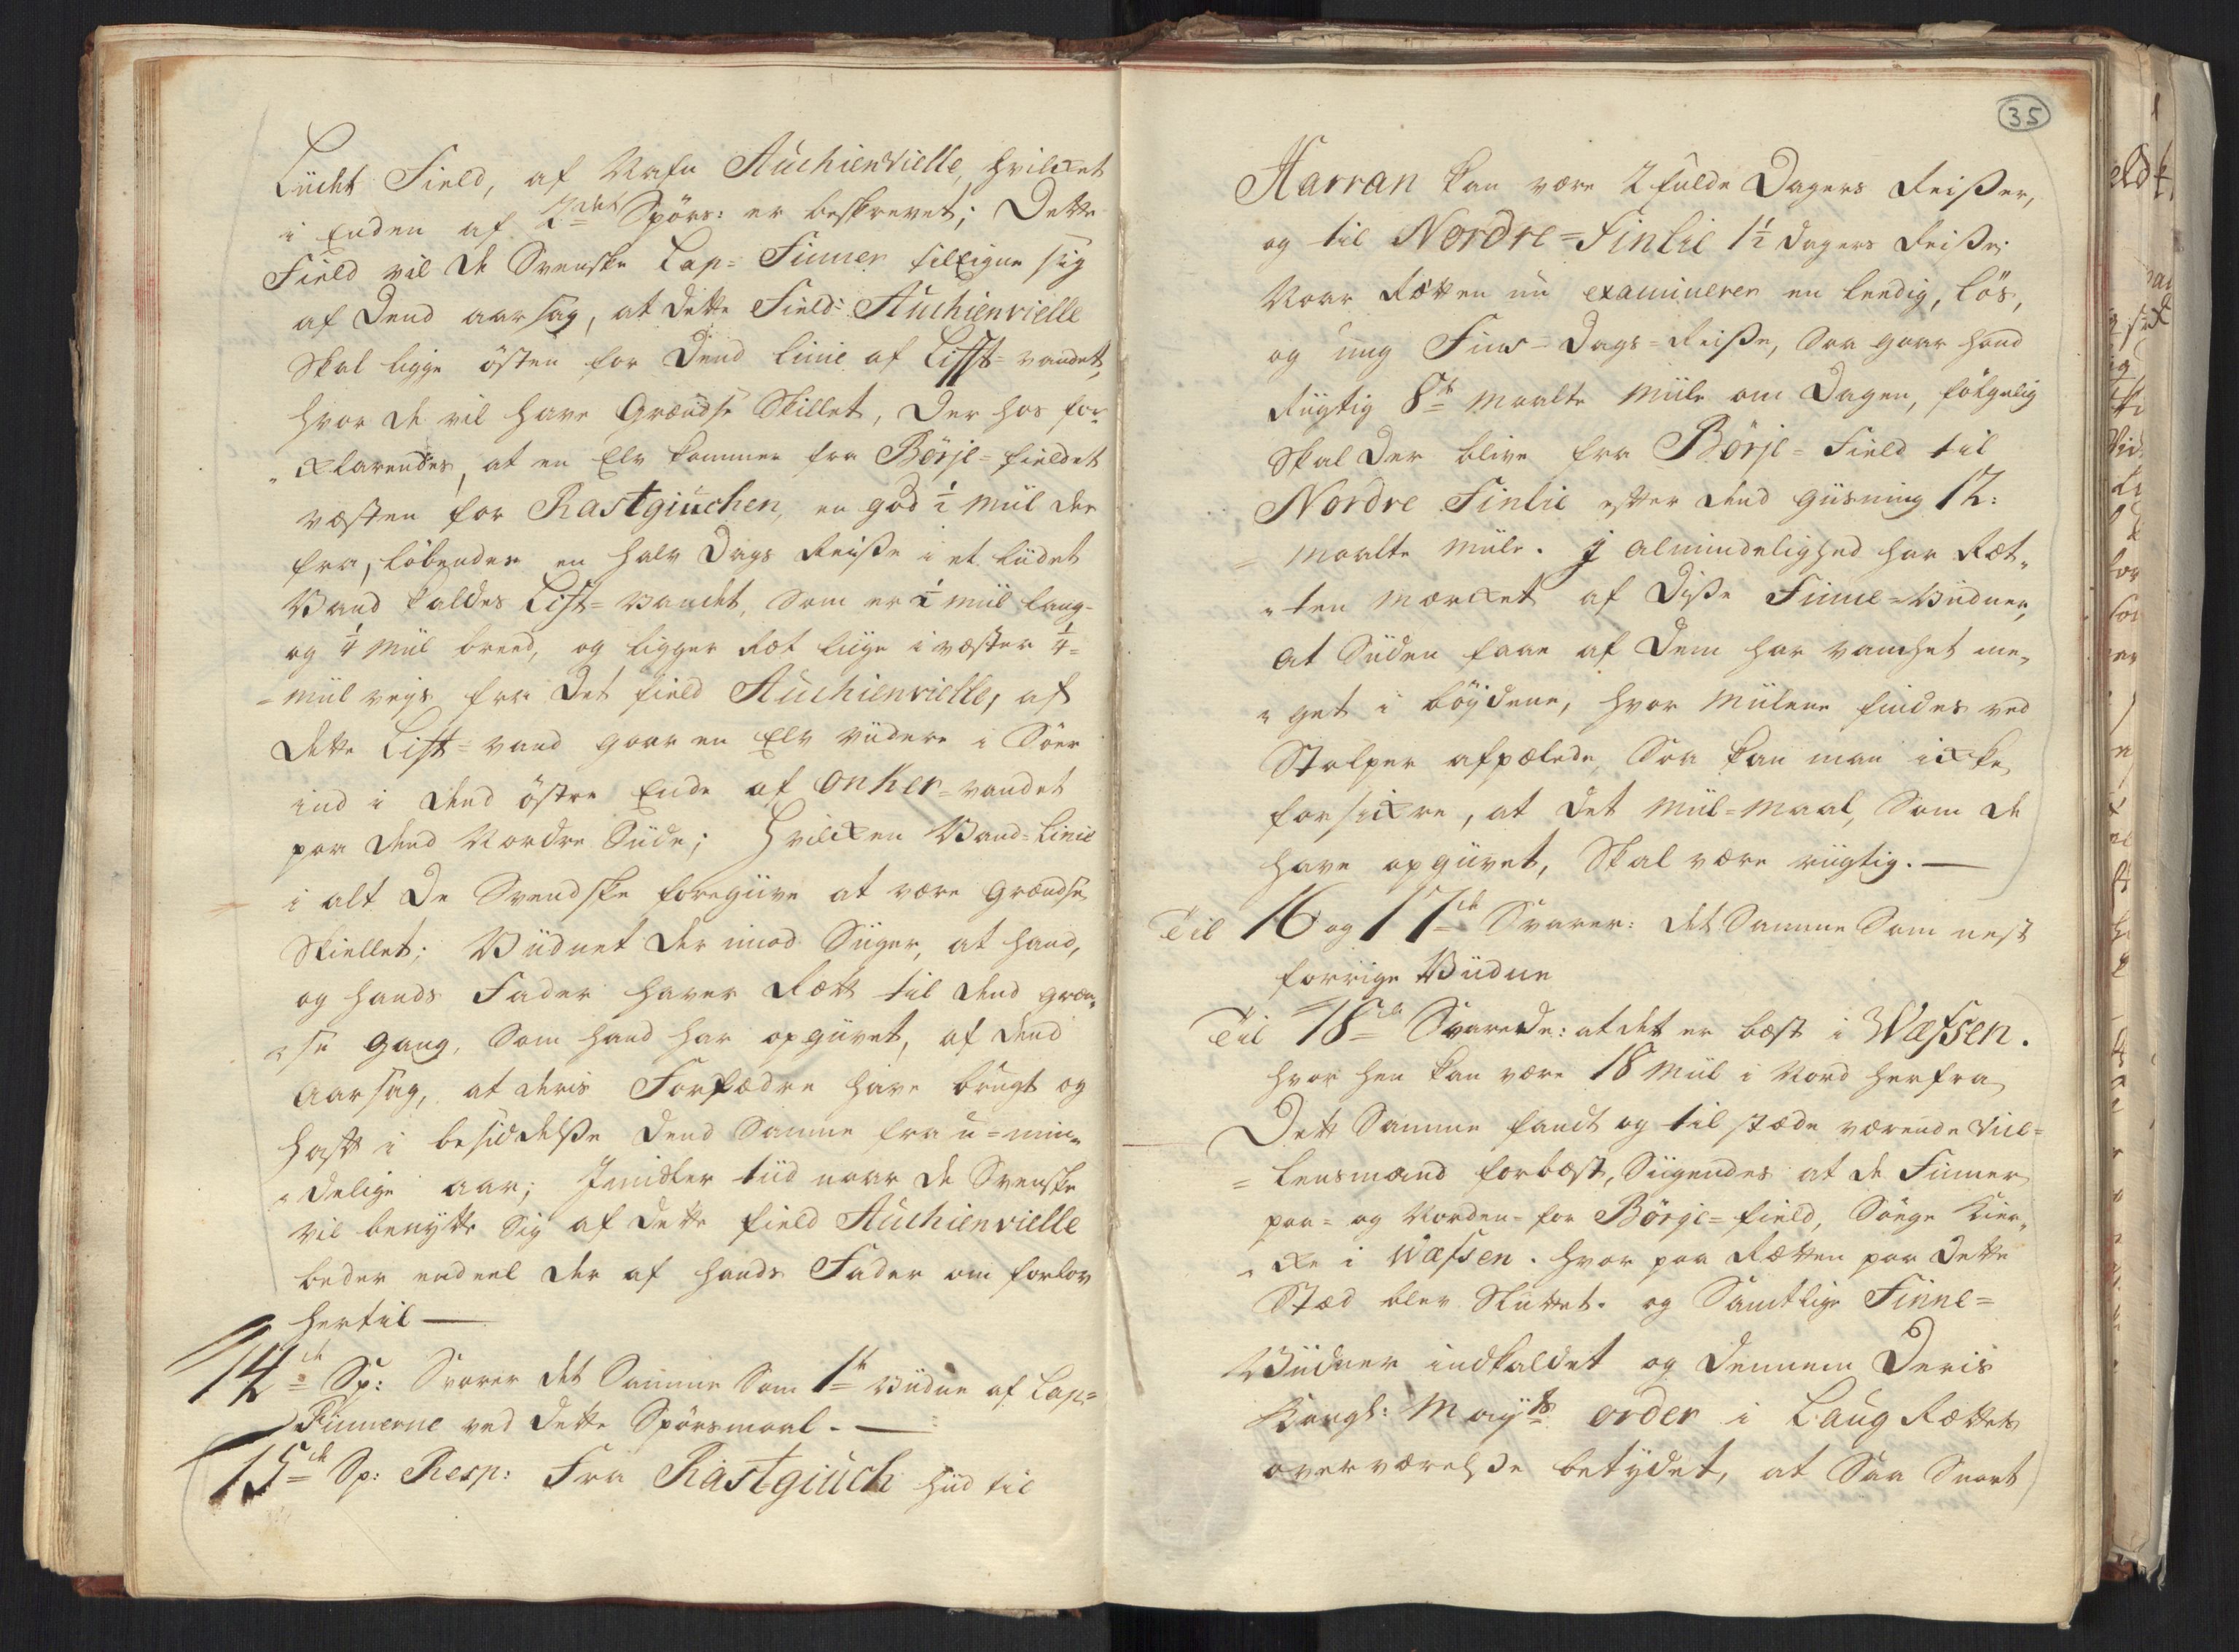 Liidet Field, af Nafn Auchienvielle, hvilcket
i Enden af 2det Spörs: er beskrevet; Dette
Field vil de Svenske Lap=Finner tileigne sig
af Dend aarsag, at dette Field: Auchienvielle
Skal ligge östen for Dend Linie af Lifft=vandet,
hvor de vil have Grændse Skillet, Der hos for¬
„cklarendes, at en Elv kommer fra Börje=fieldet
væsten for Rastgiuchen, en god ½ miil der
fra, löbendes en halv Dags Reiße i et liidet
Vand kaldes Lift=vandet, Som er ½ miil lang
og ¼ miil breed, og ligger Ræt liige i væster ¼
=miil veys fra Det field Auchienvielle, af
dette Lift=vand gaar en Elv viidere i Söer
ind i dend östre Ende af Onker=vandet
paa dend Nordre Siide; Hvilcken Vand=Linie
i alt De Svendske foregiive at være Grændse
Skiellet; Viidnet der imod Siiger, at hand,
og hands Fader haver Rætt til dend græn„
„se gang, Som hand har opgiivet, af dend
Aarsag, at deris Forfædre have brugt og
hafft i besiddelße dend Samme fra u=min„
„delige aar; Jmidler tiid naar de Svenske
vil benytte Sig af dette field Auchienvielle
beder endeel der af hands Fader om forlov
hertil —
14de Sp: Svarer det Samme Som 1te Viidne af Lap=
Finnerne ved dette Spörsmaal. —
15de Sp: Resp: Fra Rastgiuch hiid til
35
Harran kan være 2 fulde Dagers Reißer,
og til Nordre=Finlie 1½ dagers Reiße;
Naar Rætten nu examinerer en leedig, lös,
og ung Fins=Dags=Reiße, Saa gaar hand
Riigtig 8te maalte Miile om Dagen, fölgelig
Skal der blive fra Börje=Field til
Nordre Finlie efter dend giisning 12:
= maalte Miile. J almindelighed har Ræt„
„ten mærcket af Diße Finne=Viidner,
at Siiden faae af Dem har vanchet me„
„get i böyderne, hvor Miilene findes ved
Stolper afpælede, Saa kan man icke
forsickre, at det Miil=Maal, Som de
have opgiivet, Skal være riigtig. —
Til 16 og 17de Svarer: det Samme Som nest
forrige Viidne
Til 18de Svarede: at det er bæst i Wæfsen.
hvor hen kan være 18 Miil i Nord herfra
Dett Samme fandt og til stæde værende Vice=
= Lensmænd forbæst, Siigendes at de Finner
paa= og Norden=for Börge=field, Sönge Kier„
„cke i Wæfsen. hvor paa Rætten paa dette
Stæd blev Sluttet. og Samtlige Finne=
Viidner indkaldet og dennem Deris
Kongl: Mayts order i Laug Rættets
overværelße betydet, at Saa Snart